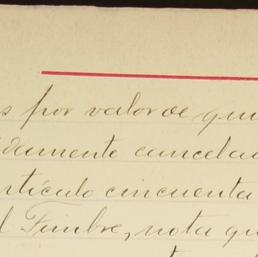 s por valor de qui
damente cancelad
rtículo cincuenta
l Timbre, nota qu